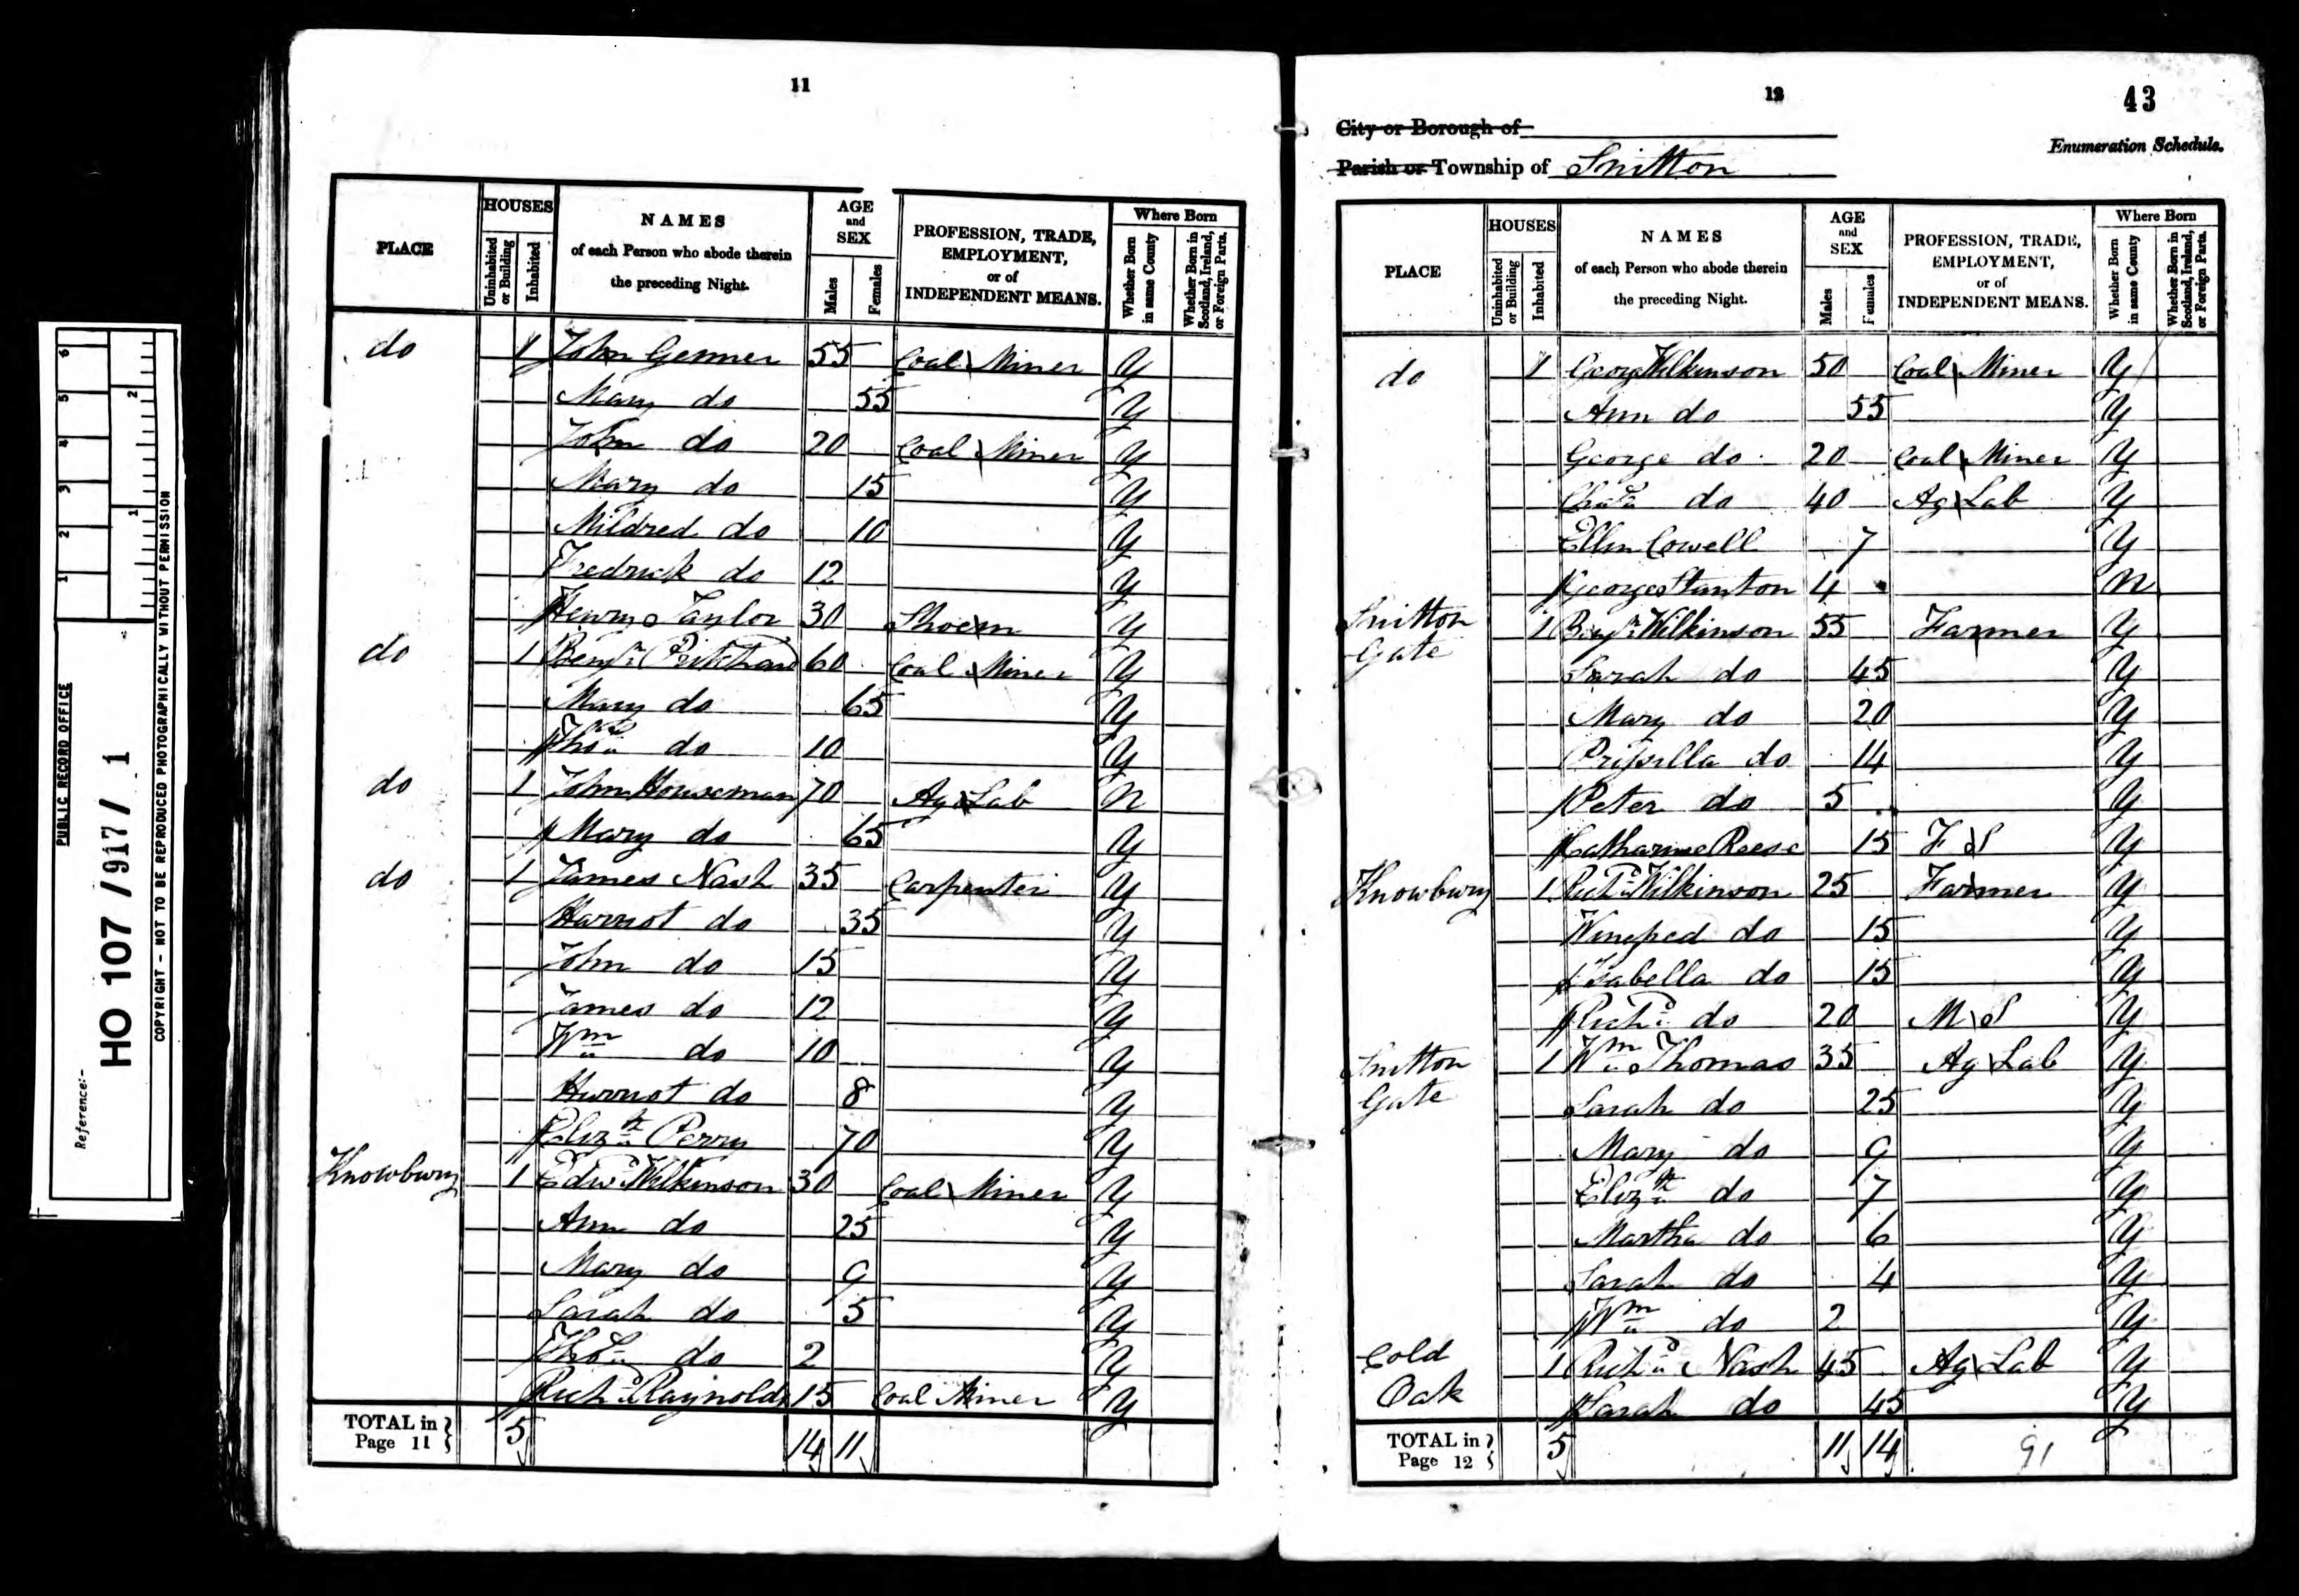 PUBLIC RECORD OFFICE
Reference:-
HO 107 / 917 / 1
COPYRIGHT - NOT TO BE REPRODUCED PHOTOGRAPHICALLY WITHOUT PERMISSION
1 2 3 4 5 6
1 2
11
PLACE
HOUSES
Uninhabited or Building
Inhabited
NAMES
of each Person who abode therein
the preceding Night.
AGE
and
SEX
Males
Females
PROFESSION, TRADE,
EMPLOYMENT,
or of
INDEPENDENT MEANS.
Where Born
Whether Born in same County
Whether Born in Scotland, Ireland, or Foreign Parts.
do 1 John Genner 55 Coal Miner Y
Mary do 55 Y
John do 20 Coal Miner Y
Mary do 15 Y
Mildred do 10 Y
Fredrick do 12 Y
Henry Taylor 30 Shoem Y
do 1 Benjn Pritchard 60 Coal Miner Y
Mary do 65 Y
Thos do 10 Y
do 1 John Houseman 70 Ag Lab N
Mary do 65 Y
do 1 James Nash 35 Carpenter Y
Harriot do 35 Y
John do 15 Y
James do 12 Y
Wm do 10 Y
Harriot do 8 Y
Elizth Perry 70 Y
Knowbury 1 Edwd Wilkinson 30 Coal Miner Y
Ann do 25 Y
Mary do 9 Y
Sarah do 5 Y
Thos do 2 Y
Richd Raynolds 15 Coal Miner Y
TOTAL in
Page 11 } 5 14 11
12
43
City or Borough of
Enumeration Schedule.
Parish or Township of Snitton
PLACE
HOUSES
Uninhabited or Building
Inhabited
NAMES
of each Person who abode therein
the preceding Night.
AGE
and
SEX
Males
Females
PROFESSION, TRADE,
EMPLOYMENT,
or of
INDEPENDENT MEANS.
Where Born
Whether Born in same County
Whether Born in Scotland, Ireland, or Foreign Parts.
do 1 George Wilkinson 50 Coal Miner Y
Ann do 55 Y
George do 20 Coal Miner Y
do 40 Ag Lab Y
Ellen Cowell 7 Y
George Stanton 4 N
Snitton Gate 1 Benjn Wilkinson 55 Farmer Y
Sarah do 45 Y
Mary do 20 Y
Prissilla do 14 Y
Peter do 5 Y
Catharine Reese 15 F S Y
Knowbury 1 Richd Wilkinson 25 Farmer Y
Winefred do 15 Y
Isabella do 15 Y
Richd do 20 M S Y
Snitton Gate 1 Wm Thomas 35 Ag Lab Y
Sarah do 25 Y
Mary do 9 Y
Elizth do 7 Y
Martha do 6 Y
Sarah do 4 Y
Wm do 2 Y
Cold Oak 1 Richd Nash 45 Ag Lab Y
Sarah do 45 Y
TOTAL in
Page 12 } 5 11 14
91